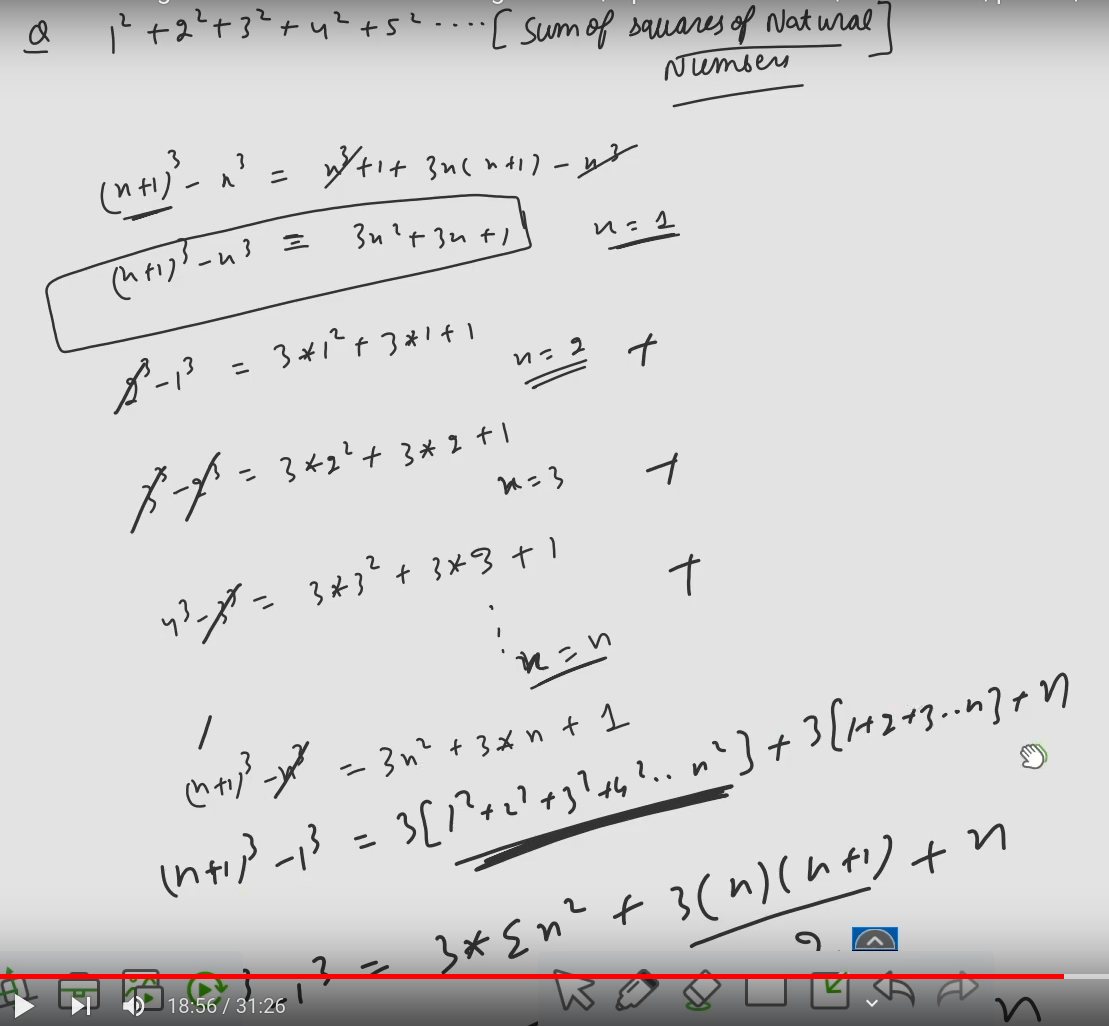 Q 1² + 2² + 3² + 4² + 5² .... [Sum of squares of Natural
Numbers]
(n+1)³ - n³ = n³ + 1 + 3n(n+1) - n³
(n+1)³ - n³ ≡ 3n² + 3n + 1 n = 1
2³ - 1³ = 3*1² + 3*1 + 1 n = 2 +
3³ - 2³ = 3*2² + 3*2 + 1 n = 3 +
4³ - 3³ = 3*3² + 3*3 + 1 +
n = n
(n+1)³ - n³ = 3n² + 3*n + 1
(n+1)³ - 1³ = 3[1² + 2² + 3² + 4² .. n²] + 3[1+2+3..n] + n
3*Σn² + 3(n)(n+1) + n
2
3 1³ =
n
18:56 / 31:26